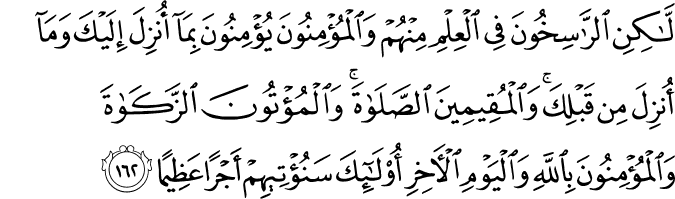 لَّٰكِنِ ٱلرَّٰسِخُونَ فِى ٱلْعِلْمِ مِنْهُمْ وَٱلْمُؤْمِنُونَ يُؤْمِنُونَ بِمَآ أُنزِلَ إِلَيْكَ وَمَآ
أُنزِلَ مِن قَبْلِكَ ۚ وَٱلْمُقِيمِينَ ٱلصَّلَوٰةَ ۚ وَٱلْمُؤْتُونَ ٱلزَّكَوٰةَ
وَٱلْمُؤْمِنُونَ بِٱللَّهِ وَٱلْيَوْمِ ٱلْءَاخِرِ أُو۟لَٰٓئِكَ سَنُؤْتِيهِمْ أَجْرًا عَظِيمًا ١٦٢